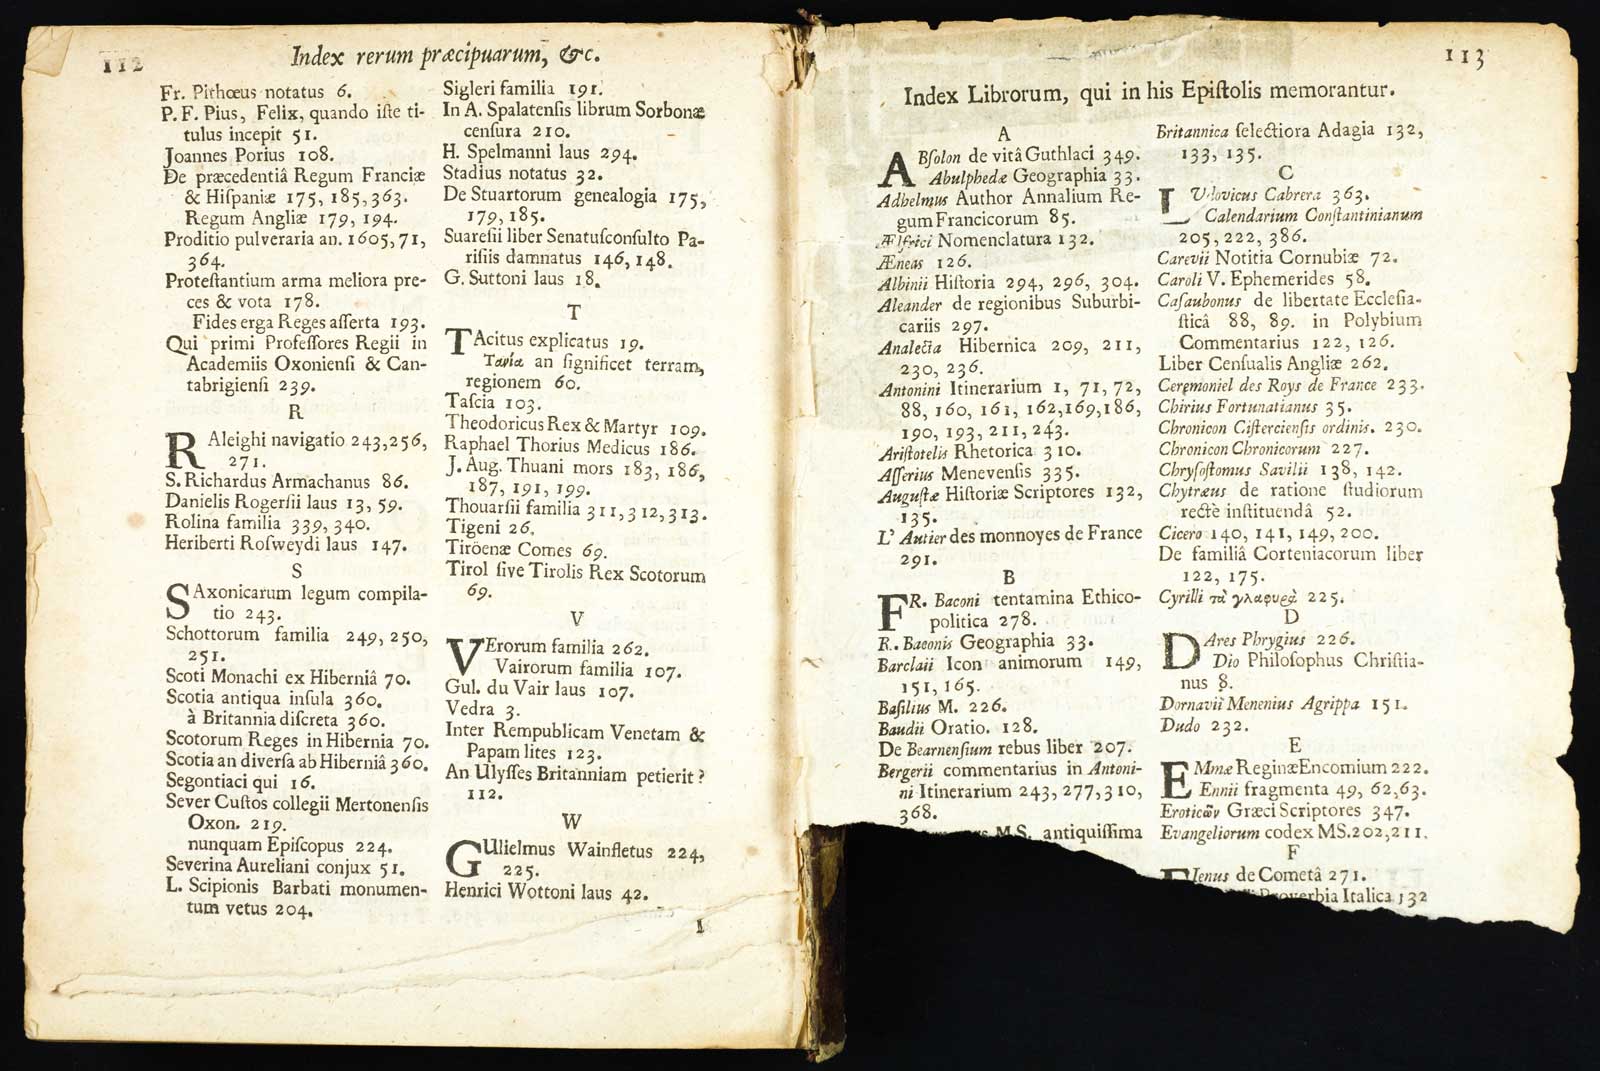 112
Index rerum præcipuarum, &c.
Fr. Pithœus notatus 6.
P. F. Pius, Felix, quando iſte ti-
tulus incepit 51.
Joannes Porius 108.
De præcedentiâ Regum Franciæ
& Hiſpaniæ 175, 185, 363.
Regum Angliæ 179, 194.
Proditio pulveraria an. 1605, 71,
364.
Proteſtantium arma meliora pre-
ces & vota 178.
Fides erga Reges aſſerta 193.
Qui primi Profeſſores Regii in
Academiis Oxonienſi & Can-
tabrigienſi 239.
R
RAleighi navigatio 243, 256,
271.
S. Richardus Armachanus 86.
Danielis Rogerſii laus 13, 59.
Rolina familia 339, 340.
Heriberti Roſweydi laus 147.
S
SAxonicarum legum compila-
tio 243.
Schottorum familia 249, 250,
251.
Scoti Monachi ex Hiberniâ 70.
Scotia antiqua inſula 360.
à Britannia diſcreta 360.
Scotorum Reges in Hibernia 70.
Scotia an diverſa ab Hiberniâ 360.
Segontiaci qui 16.
Sever Cuſtos collegii Mertonenſis
Oxon. 219.
nunquam Epiſcopus 224.
Severina Aureliani conjux 51.
L. Scipionis Barbati monumen-
tum vetus 204.
Sigleri familia 191.
In A. Spalatenſis librum Sorbonæ
cenſura 210.
H. Spelmanni laus 294.
Stadius notatus 32.
De Stuartorum genealogia 175,
179, 185.
Suareſii liber Senatuſconſulto Pa-
riſiis damnatus 146, 148.
G. Suttoni laus 18.
T
TAcitus explicatus 19.
Τανία an ſignificet terram,
regionem 60.
Taſcia 103.
Theodoricus Rex & Martyr 109.
Raphael Thorius Medicus 186.
J. Aug. Thuani mors 183, 186,
187, 191, 199.
Thouarſii familia 311, 312, 313.
Tigeni 26.
Tiröenæ Comes 69.
Tirol ſive Tirolis Rex Scotorum
69.
V
VErorum familia 262.
Vairorum familia 107.
Gul. du Vair laus 107.
Vedra 3.
Inter Rempublicam Venetam &
Papam lites 123.
An Ulyſſes Britanniam petierit?
112.
W
GUlielmus Wainfletus 224,
225.
Henrici Wottoni laus 42.
I
113
Index Librorum, qui in his Epiſtolis memorantur.
A
ABſolon de vitâ Guthlaci 349.
Abulphedæ Geographia 33.
Adhelmus Author Annalium Re-
gum Francicorum 85.
Ælfrici Nomenclatura 132.
Æneas 126.
Albinii Hiſtoria 294, 296, 304.
Aleander de regionibus Suburbi-
cariis 297.
Analecta Hibernica 209, 211,
230, 236.
Antonini Itinerarium 1, 71, 72,
88, 160, 161, 162, 169, 186,
190, 193, 211, 243.
Ariſtotelis Rhetorica 310.
Aſſerius Menevenſis 335.
Auguſtæ Hiſtoriæ Scriptores 132,
135.
L' Autier des monnoyes de France
291.
B
FR. Baconi tentamina Ethico-
politica 278.
R. Baconis Geographia 33.
Barclaii Icon animorum 149,
151, 165.
Baſilius M. 226.
Baudii Oratio. 128.
De Bearnenſium rebus liber 207.
Bergerii commentarius in Antoni-
ni Itinerarium 243, 277, 310,
368.
MS. antiquiſſima
Britannica ſelectiora Adagia 132,
133, 135.
C
LUdovicus Cabrera 363.
Calendarium Conſtantinianum
205, 222, 386.
Carevii Notitia Cornubiæ 72.
Caroli V. Ephemerides 58.
Caſaubonus de libertate Eccleſia-
ſticâ 88, 89. in Polybium
Commentarius 122, 126.
Liber Cenſualis Angliæ 262.
Ceremoniel des Roys de France 233.
Chirius Fortunatianus 35.
Chronicon Ciſtercienſis ordinis. 230.
Chronicon Chronicorum 227.
Chryſoſtomus Savilii 138, 142.
Chytræus de ratione ſtudiorum
rectè inſtituendâ 52.
Cicero 140, 141, 149, 200.
De familiâ Corteniacorum liber
122, 175.
Cyrilli τὰ γλαφυρὰ 225.
D
DAres Phrygius 226.
Dio Philoſophus Chriſtia-
nus 8.
Dornavii Menenius Agrippa 151.
Dudo 232.
E
EMmæ Reginæ Encomium 222.
Ennii fragmenta 49, 62, 63.
Eroticῶν Græci Scriptores 347.
Evangeliorum codex MS. 202, 211.
F
FIenus de Cometâ 271.
Proverbia Italica 132